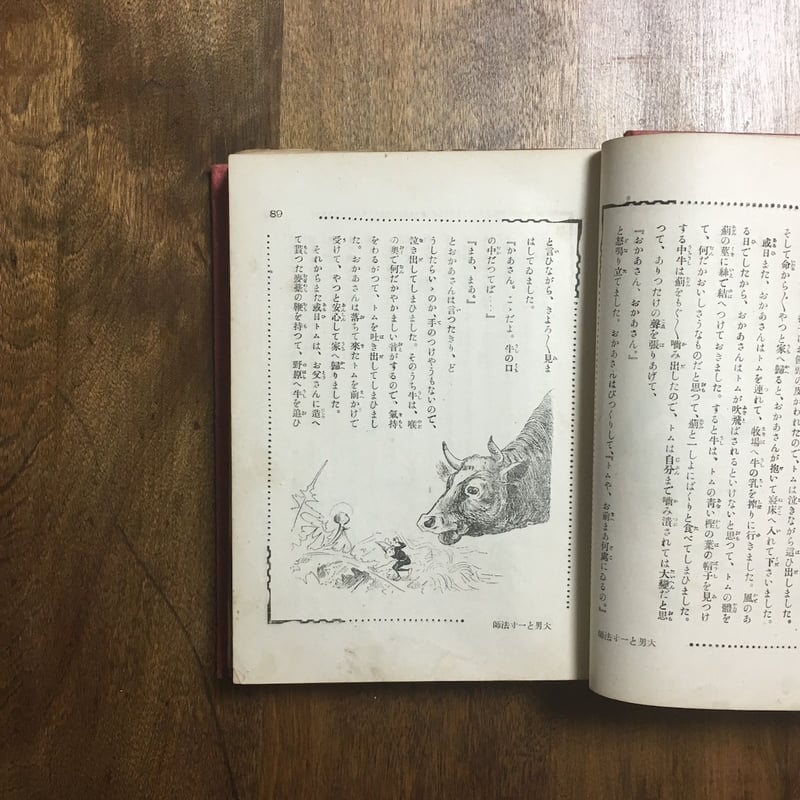 そして命から〲やつと家へ歸ると、おかあさんが抱いて寢床へ入れて下さいました。
或日また、おかあさんはトムを連れて、牧場へ牛の乳を搾りに行きました。風のあ
る日でしたから、おかあさんはトムが吹飛ばされるといけないと思つて、トムの體を
薊の莖に絲で結へつけておきました。すると牛は、トムの靑い樫の葉の帽子を見つけ
て、何だかおいしさうなものだと思つて、薊と一しよにぱくりと食べてしまひました。
する中牛は薊をもぐ〳〵嚙み出したので、トムは自分まで嚙み潰されては大變だと思
つて、ありつたけの聲を張りあげて、
『おかあさん、おかあさん。』
と怒鳴り立てました。おかあさんはびつくりして、『トムや、お前まあ何處にゐるの。』
大男と一寸法師
と言ひながら、きよろ〳〵見ま
はしてゐました。
『かあさん。こゝだよ。牛の口
の中だつてば……』
『まあ、まあ。』
とおかあさんは言つたきり、ど
うしたらいゝのか、手のつけやうもないので、
泣き出してしまひました。そのうち牛は、喉
の奧で何だかやかましい音がするので、氣持
をわるがつて、トムを吐き出してしまひまし
た。おかあさんは落ちて來たトムを前かけで
受けて、やつと安心して家へ歸りました。
それからまた或日トムは、お父さんに造へ
て貰つた麥藁の鞭を持つて、野原へ牛を追ひ
大男と一寸法師
89